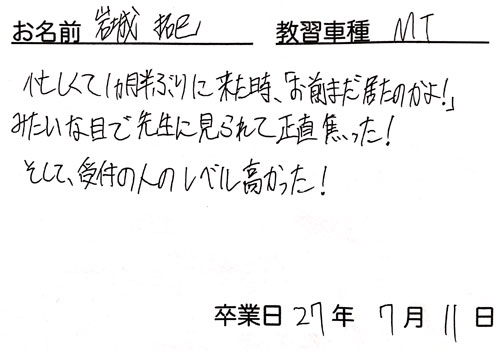 お名前 岩城 拓巳 教習車種 MT
忙しくて1ヵ月半ぶりに来た時、「お前まだ居たのかよ!」
みたいな目で先生に見られて正直焦った!
そして、受付の人のレベル高かった!
卒業日 27年 7月 11日